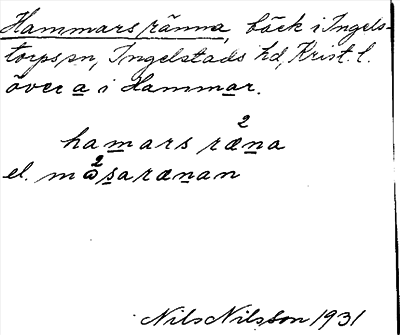 Hammars ränna, böck i Ingels-
torps sn, Ingelstads hd, Krist. l.
över a i Hammar.
2
hamars ræna
2
el. måsarænan
Nils Nilsson 1931